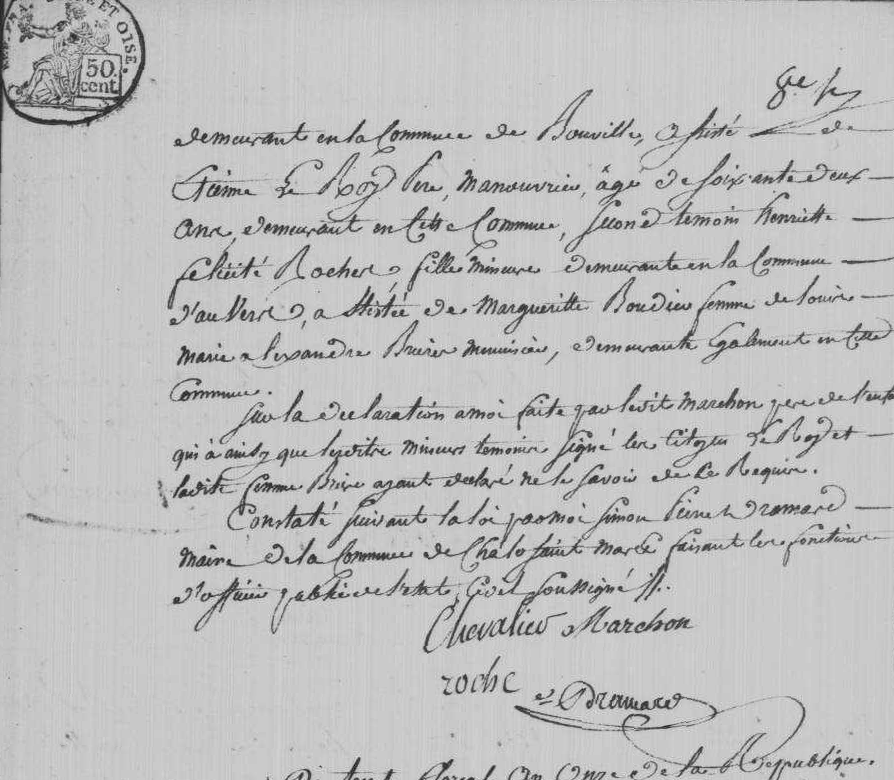 ET OISE.
50
cent.
8e f
demeurant en la Commune de Bouville, assisté de
Etienne Le Roy Pere, manouvrier, âgé de soixante deux
Ans, demeurant en Cette Commune, second temoin henriette
felicité Rocher, fille mineure demeurante en la Commune
d'auvers, assistée de Margueritte Boudier femme de louis
marie alexandre Brier menuisier, demeurante Egalement en Cette
Commune.
Sur la declaration a moi faite par ledit Marchon pere de l'enfant
qui a ainsy que lesdits mineurs temoins signé les Citoyen Le Roy et
ladite femme Brier ayant declaré ne le savoir de Ce Requis.
Constaté suivant la loi par moi Simon Dramard
maire de la Commune de Chalo saint mars faisant les fonctions
d'officier public de l'etat Civil soussigné
Chevalier Marchon
roche Dramard
floreal An Onze de la Republique.